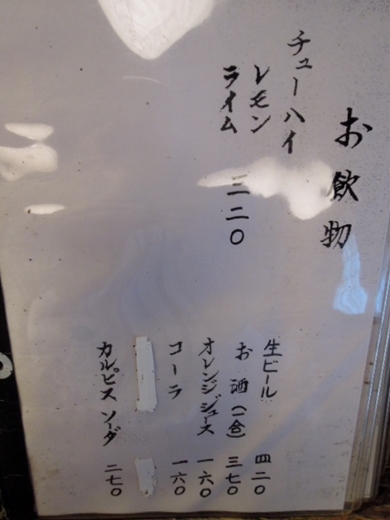 お飲物
チューハイ
レモン
ライム 三二〇
生ビール 四二〇
お酒(一合) 三七〇
オレンジジュース 一六〇
コーラ 一六〇
カルピスソーダ 二七〇